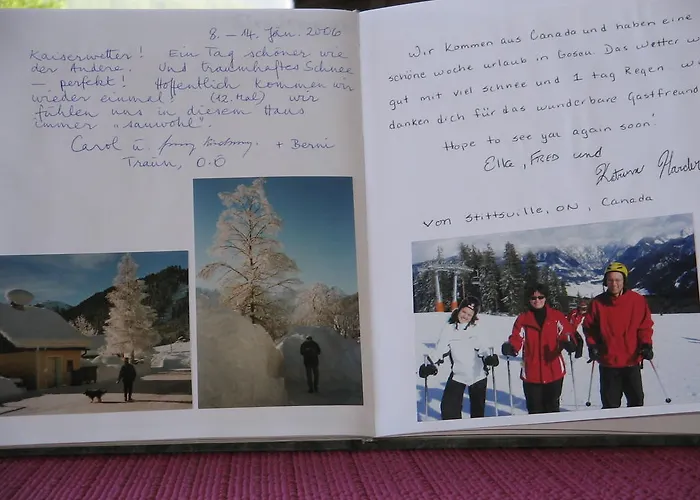 8. – 14. Jän. 2006
Kaiserwetter! Ein Tag schöner wie
der Andere. Und traumhaftes Schnee
– perfekt! Hoffentlich kommen wir
wieder einmal! (12. Mal) wir
fühlen uns in diesem Haus
immer „sauwohl".
Carol u. + Berni
Traun, O.Ö
Wir kommen aus Canada und haben eine
schöne woche urlaub in Gosau. Das Wetter w
gut mit viel schnee und 1 tag Regen w
danken dich für das wunderbare Gastfreund
Hope to see you again soon!
Ella, FRED und
Katrina Harder
Von Stittsville, ON, Canada